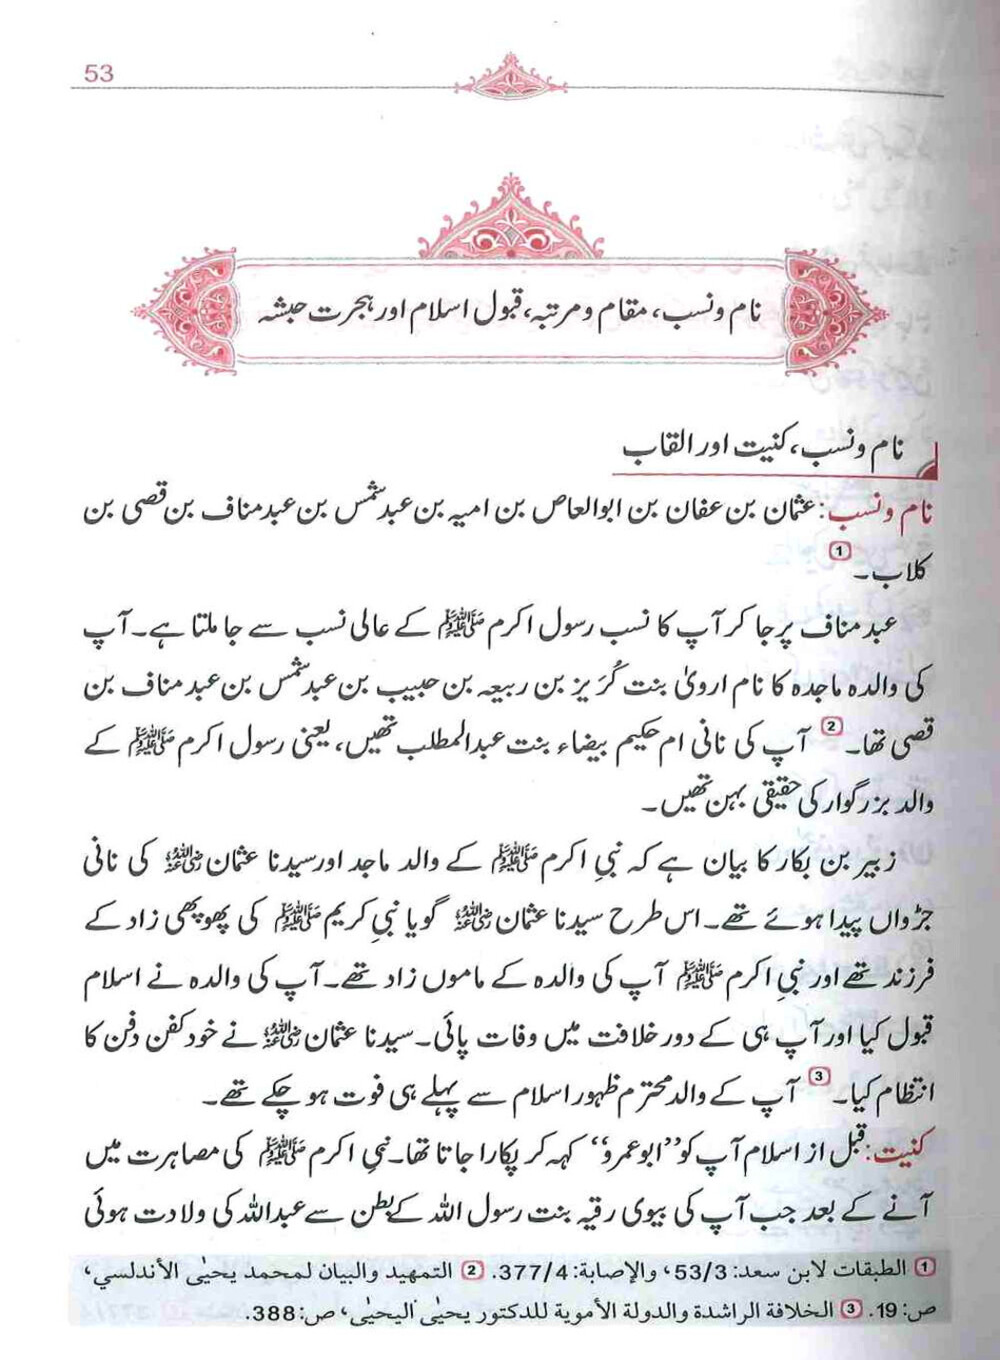 53
نام ونسب، مقام ومرتبہ، قبول اسلام اور ہجرت حبشہ
نام ونسب، کنیت اور القاب
نام ونسب: عثمان بن عفان بن ابوالعاص بن امیہ بن عبدشمس بن عبدمناف بن قصی بن
کلاب۔ 1
عبد مناف پر جا کر آپ کا نسب رسول اکرم ﷺ کے عالی نسب سے جا ملتا ہے۔ آپ
کی والدہ ماجدہ کا نام ارویٰ بنت کُرَیز بن ربیعہ بن حبیب بن عبدشمس بن عبدمناف بن
قصی تھا۔ 2 آپ کی نانی ام حکیم بیضاء بنت عبدالمطلب تھیں، یعنی رسول اکرم ﷺ کے
والد بزرگوار کی حقیقی بہن تھیں۔
زبیر بن بکار کا بیان ہے کہ نبیِ اکرم ﷺ کے والد ماجد اور سیدنا عثمان رضی اللہ عنہ کی نانی
جڑواں پیدا ہوئے تھے۔ اس طرح سیدنا عثمان رضی اللہ عنہ گویا نبیِ کریم ﷺ کی پھوپھی زاد کے
فرزند تھے اور نبیِ اکرم ﷺ آپ کی والدہ کے ماموں زاد تھے۔ آپ کی والدہ نے اسلام
قبول کیا اور آپ ہی کے دور خلافت میں وفات پائی۔ سیدنا عثمان رضی اللہ عنہ نے خود کفن دفن کا
انتظام کیا۔ 3 آپ کے والد محترم ظہور اسلام سے پہلے ہی فوت ہو چکے تھے۔
کنیت: قبل از اسلام آپ کو ”ابوعمرو“ کہہ کر پکارا جاتا تھا۔ نبیِ اکرم ﷺ کی مصاہرت میں
آنے کے بعد جب آپ کی بیوی رقیہ بنت رسول اللہ کے بطن سے عبداللہ کی ولادت ہوئی
1 الطبقات لابن سعد: 53/3، والإصابة: 377/4. 2 التمهيد والبيان لمحمد يحيٰى الأندلسي،
ص: 19. 3 الخلافة الراشدة والدولة الأموية للدكتور يحيٰى اليحيٰى، ص: 388.